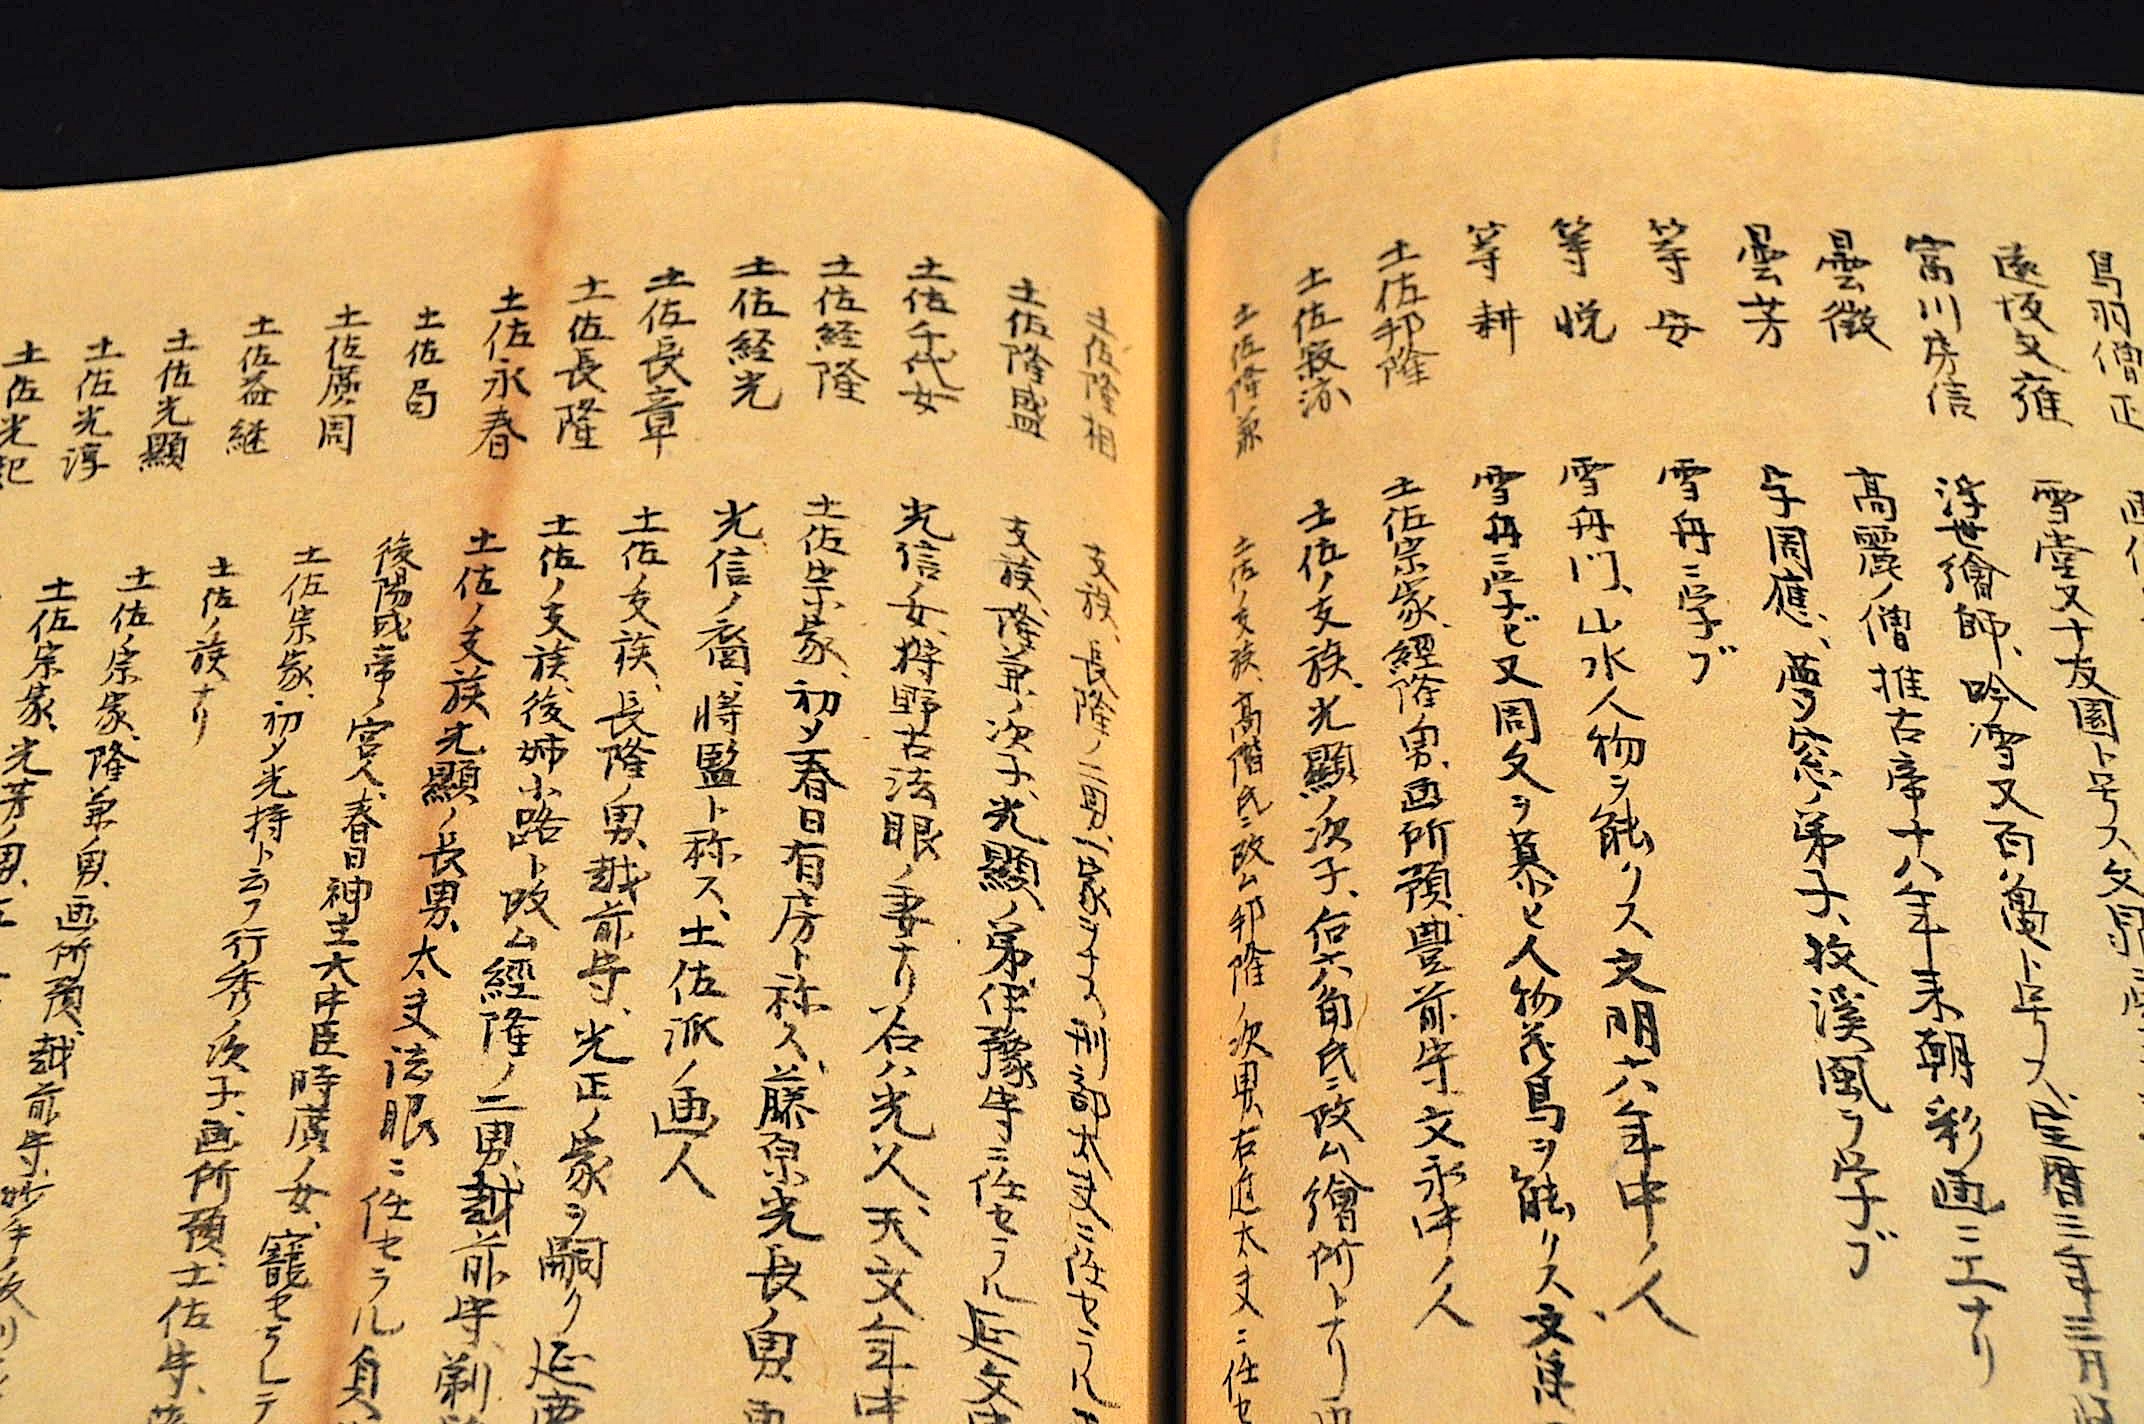 鳥羽僧正
遠坂文雍 雪堂又十友園ト号ス文晁
富川房信 浮世繪師、吟雪又百亀ト号ス、宝暦三年三月
曇徴 高麗ノ僧推古帝十八年来朝彩画ニエナリ
曇芳 字周應、夢窓ノ弟子、牧溪風ヲ学ブ
等安 雪舟ニ学ブ
等悦 雪舟門、山水人物ヲ能クス文明十八年中ノ人
等耕 雪舟ニ学ビ又周文ヲ慕ヒ人物花鳥ヲ能クス、文
土佐邦隆 土佐宗家、經隆ノ男、画所預、豊前守文永中ノ人
土佐寂済 土佐ノ支族、光顯ノ次子、六角氏ニ改ム繪所トナリ
土佐隆兼 土佐ノ支族、高階氏ニ改ム邦隆ノ次男、右近太夫ニ任セ
土佐隆相 支族、長隆ノ二男、一家ヲナス、刑部太夫ニ任セラル
土佐隆盛 支族、隆兼ノ次子、光顯ノ弟伊豫守ニ任セラル延文
土佐千代女 光信ノ女、狩野古法眼ノ妻ナリ名ハ光久、天文年中
土佐経隆 土佐宗家、初メ春日有房ト称ス、藤原光長ノ男
土佐経光 光信ノ裔、将監ト称ス、土佐派ノ画人
土佐長章 土佐ノ支族、長隆ノ男、越前守、光正ノ家ヲ嗣ク延慶
土佐長隆 土佐ノ支族、後姉小路ト改ム經隆ノ二男、越前守、剃
土佐永春 土佐ノ支族光顯ノ長男、太夫法眼ニ任セラル貞
土佐局 後陽成帝ノ宮人、春日神主大中臣時廣ノ女、寵セラレテ
土佐廣周 土佐宗家、初メ光持ト云フ行秀ノ次子、画所預、土佐守、
土佐益継 土佐ノ族ナリ
土佐光顯 土佐ノ宗家、隆兼ノ男、画所預、越前守、妙手ノ
土佐光淳 土佐宗家、光芳ノ男、
土佐光起